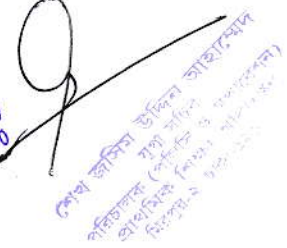 শেখ জসিম উদ্দিন আহাম্মেদ
যুগ্ম সচিব
পরিচালক (পলিসি ও অপারেশন)
প্রাথমিক শিক্ষা অধিদপ্তর
মিরপুর-২